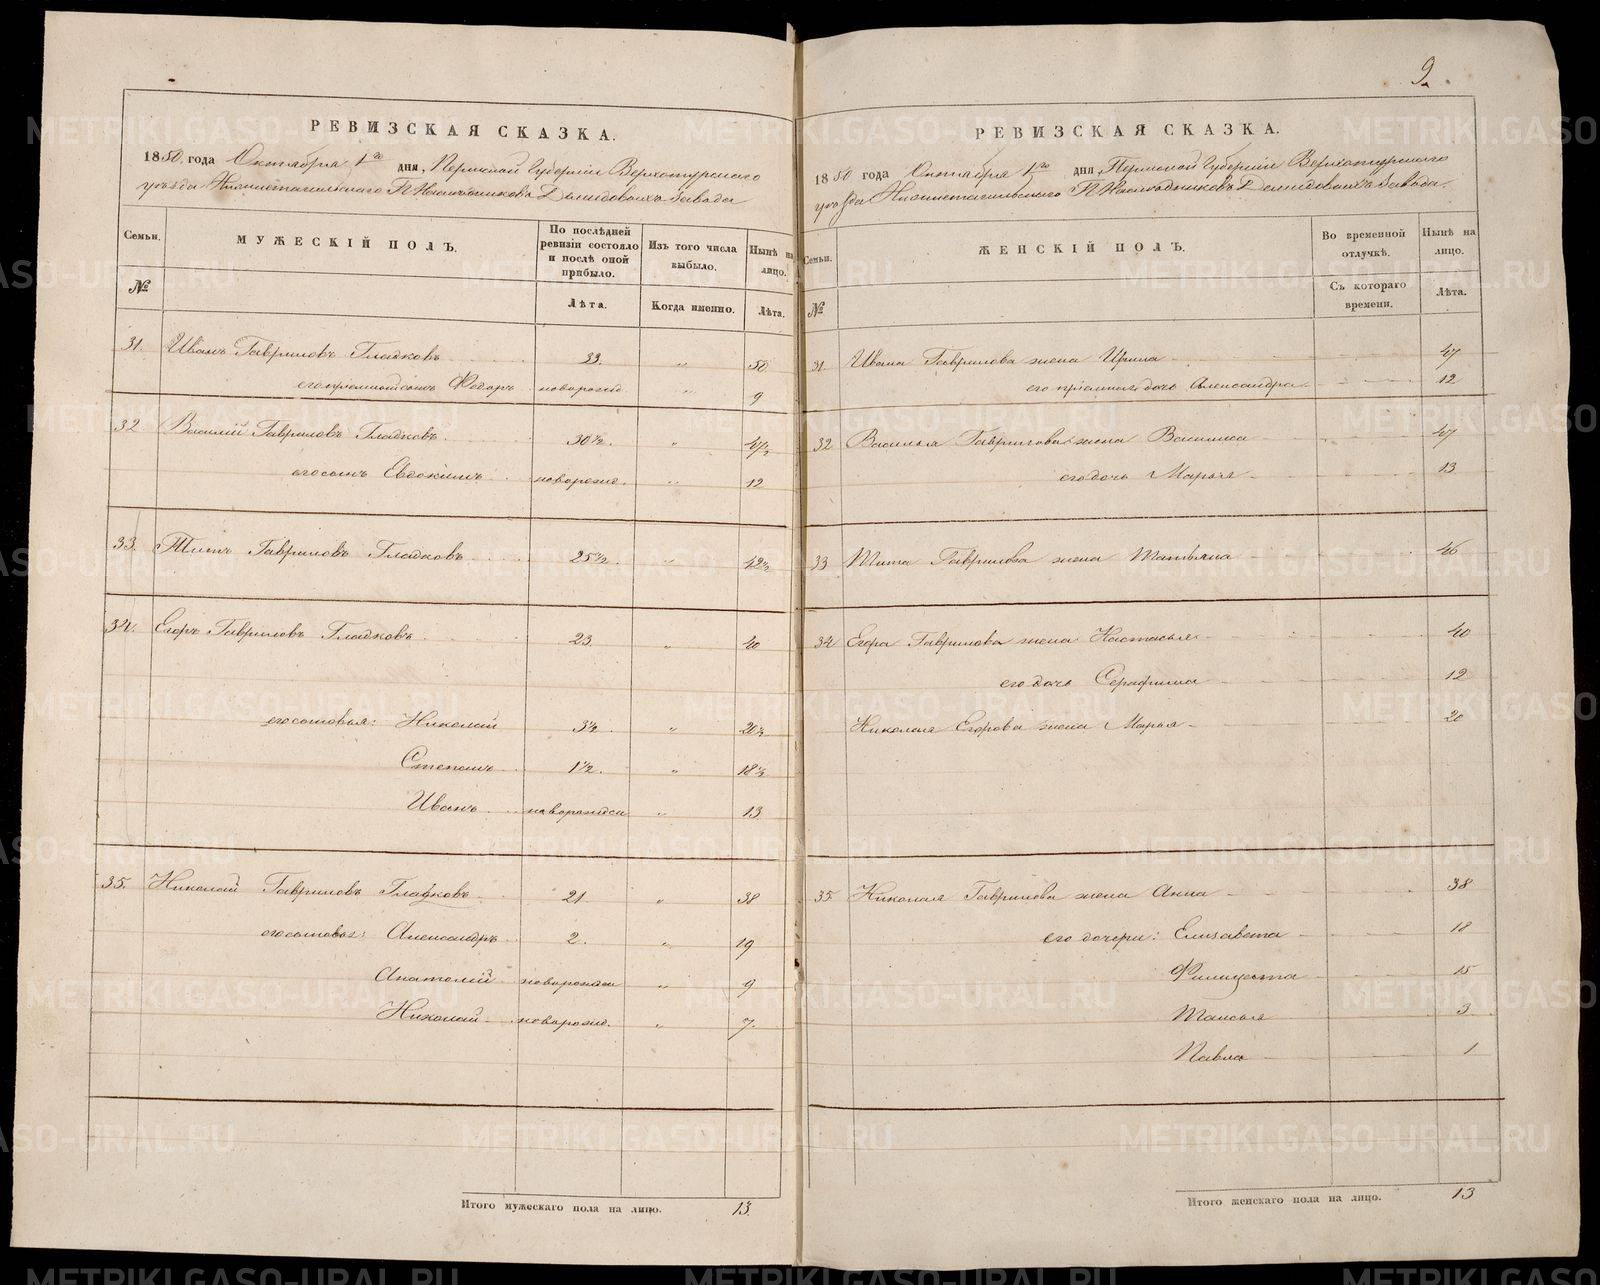 РЕВИЗСКАЯ СКАЗКА.
1850 года Октября 1го дня, Пермской Губерніи Верхотурскаго
уѣзда Нижнетагильскаго Г. Наслѣдниковъ Демидовыхъ Завода
Семьи.
№
МУЖЕСКІЙ ПОЛЪ.
По послѣдней ревизіи состояло и послѣ оной прибыло.
Лѣта.
Изъ того числа выбыло.
Когда именно.
Нынѣ на лицо.
Лѣта.
31. Иванъ Гавриловъ Гладковъ 33. " 50
его пріемный сынъ Федоръ новорожд. " 9
32 Василій Гавриловъ Гладковъ. 30½. " 47½
его сынъ Евдокимъ новорожд. " 12
33. Титъ Гавриловъ Гладковъ 25½. " 42½
34. Егоръ Гавриловъ Гладковъ 23. " 40
его сыновья: Николай 3½. " 20½
Степанъ 1½. " 18½
Иванъ новорожден " 13
35. Николай Гавриловъ Гладковъ 21. " 38
его сыновья: Александръ 2. " 19
Анатолій новорожден " 9
Николай новорожд. " 7.
Итого мужескаго пола на лицо. 13.
9.
РЕВИЗСКАЯ СКАЗКА.
1850 года Октября 1го дня, Пермской Губерніи Верхотурскаго
уѣзда Нижнетагильскаго Г. Наслѣдниковъ Демидовыхъ Завода.
Семьи.
№
ЖЕНСКІЙ ПОЛЪ.
Во временной отлучкѣ.
Съ котораго времени.
Нынѣ на лицо.
Лѣта.
31. Ивана Гаврилова жена Ирина 47
его пріемная дочь Александра 12
32 Василья Гаврилова жена Василиса 47
его дочь Марья 13
33 Тита Гаврилова жена Татьяна 46
34 Егора Гаврилова жена Настасья 40
его дочь Серафима 12
Николая Егорова жена Марья 20
35. Николая Гаврилова жена Анна 38
его дочери: Елизавета 18
Филицата 15
Таисья 3
Павла 1
Итого женскаго пола на лицо. 13
METRIKI.GASO-URAL.RU